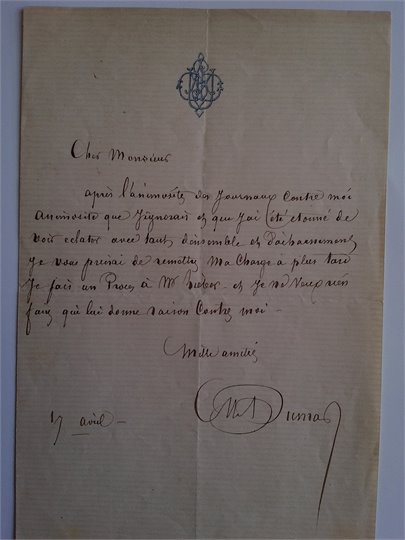 Cher Monsieur
après l'animosité des Journaux Contre moi
animosité que J'ignorais et que J'ai été étonné de
voir eclater avec tant d'ensemble et d'acharnement
Je vous prierai de remettre Ma Charge à plus tard
Je fais un Procès à Mr et Je ne Veux rien
faire qui lui donne raison Contre moi -
Mille amitiés
Dumas
17 avril -